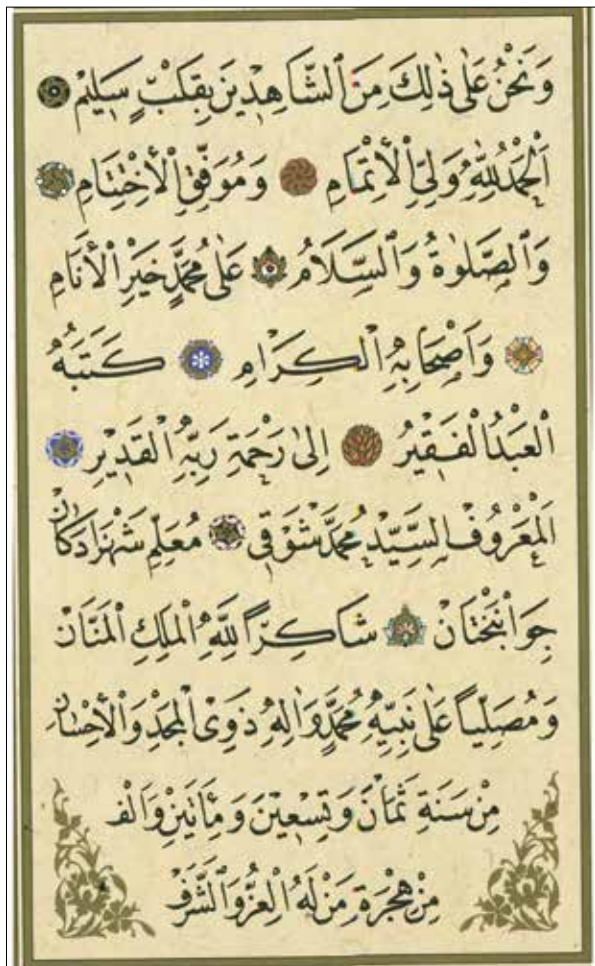 وَنَحْنُ عَلٰى ذٰلِكَ مِنَ الشَّاهِدٖينَ بِقَلْبٍ سَلِيمٍ
اَلْحَمْدُ لِلّٰهِ وَلِيِّ الْاِتْمَامِ وَمُوَفِّقِ الْاِخْتِتَامِ
وَالصَّلٰوةُ وَالسَّلَامُ عَلٰى مُحَمَّدٍ خَيْرِ الْاَنَامِ
وَاَصْحَابِهِ الْكِرَامِ كَتَبَهُ
الْعَبْدُ الْفَقٖيرُ اِلٰى رَحْمَةِ رَبِّهِ الْقَدٖيرِ
الْمَعْرُوفُ السَّيِّدْ مُحَمَّدْ شَوْقٖي مُعَلِّمِ شَهْزَادَكَانِ
جَوَانْبَخْتَانْ شَاكِرًا لِلّٰهِ الْمَلِكِ الْمَنَّانْ
وَمُصَلِّيًا عَلٰى نَبِيِّهِ مُحَمَّدٍ وَاٰلِهِ ذَوِى الْمَجْدِ وَالْاِحْسَانِ
مِنْ سَنَةِ ثَمَانَ وَتِسْعٖينَ وَمِأَتَيْنِ وَاَلْفْ
مِنْ هِجْرَةِ مَنْ لَهُ الْعِزُّ وَالشَّرَفْ